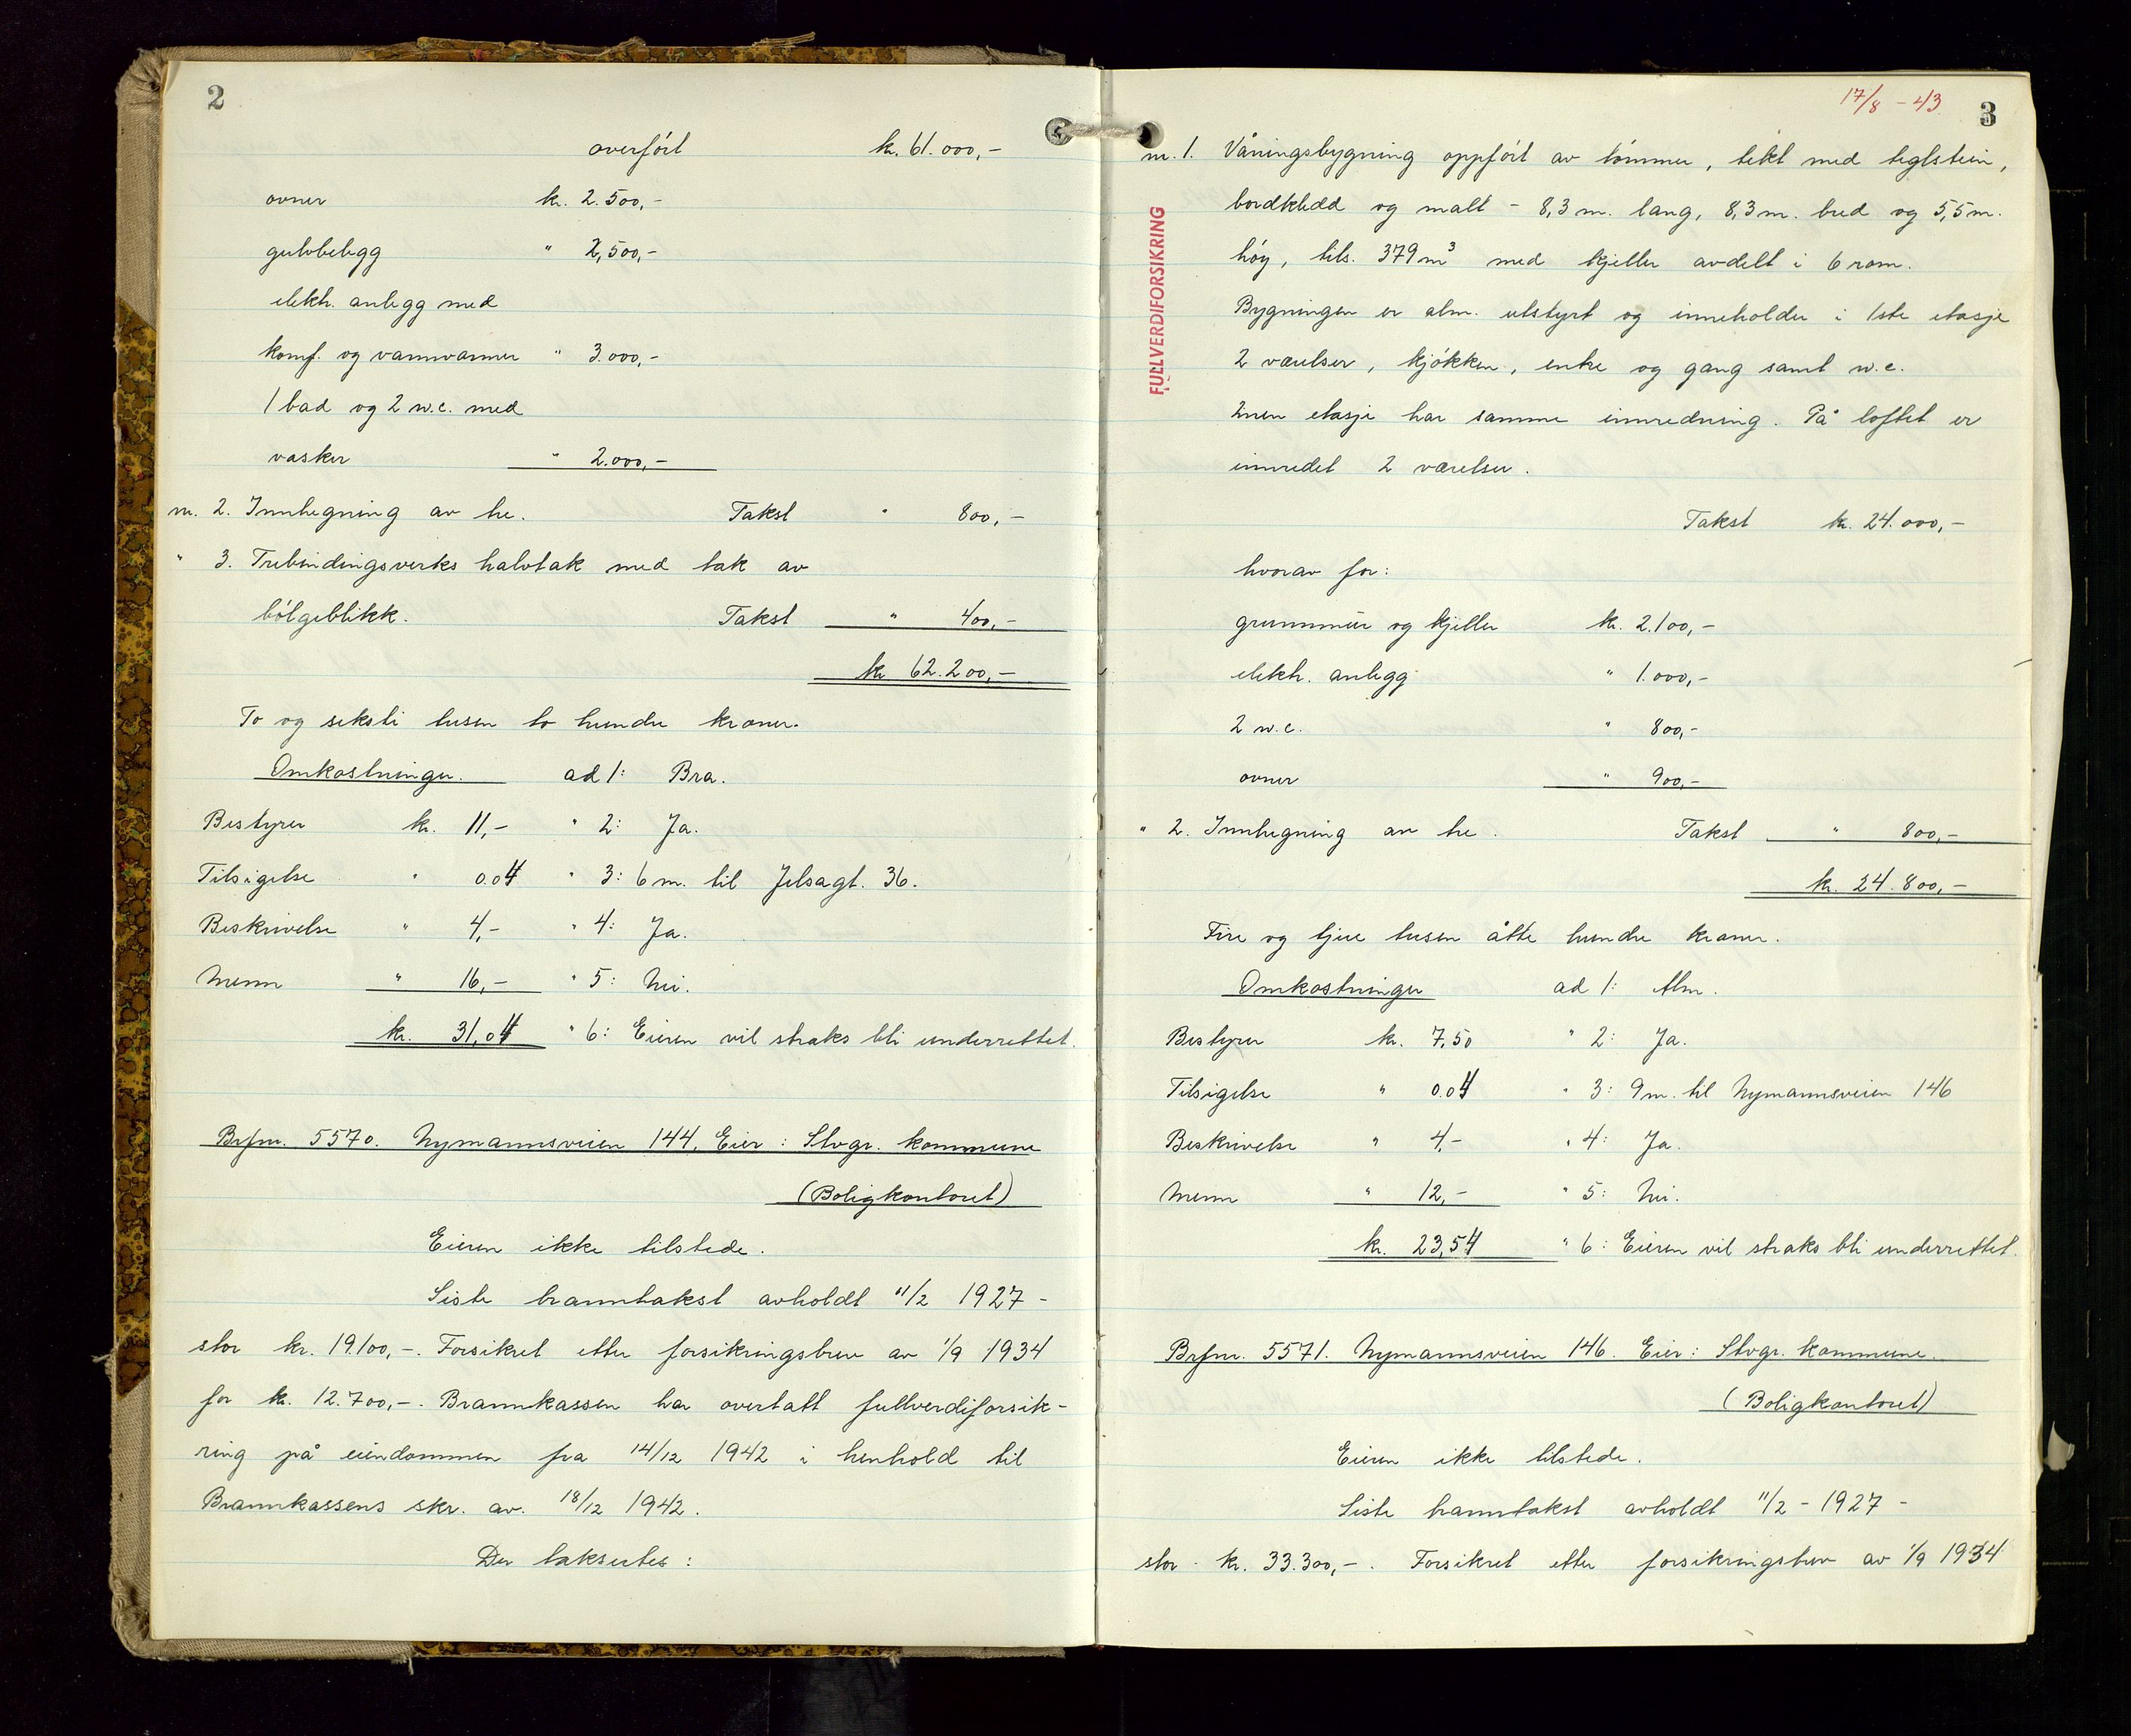 2
overført kr. 61.000,-
ovner kr. 2.500,-
gulvbelegg " 2,500,-
elektr. anlegg med
komf. og vannvarmer " 3.000,-
1 bad og 2 w.c. med
vasker " 2.000,-
nr. 2. Innhegning av tre. Takst " 800,-
" 3. Trebindingsverks halvtak med tak av
bølgeblikk. Takst " 400,-
kr. 62.200,-
To og seksti tusen to hundre kroner.
Omkostninger. ad 1: Bra.
Bestyrer kr. 11,- " 2: Ja.
Tilsigelse " 0.04 " 3: 6 m. til Jelsagt. 36.
Beskrivelse " 4,- " 4: Ja.
Menn " 16,- " 5: Nei.
kr. 31,04 " 6: Eieren vil straks bli underrettet.
Brfnr. 5570. Nymannsveien 144. Eier: Stvgr. kommune
(Boligkontoret)
Eieren ikke tilstede.
Siste branntakst avholdt 11/2 1927 -
stor kr. 19.100,-. Forsikret etter forsikringsbrev av 1/9 1934
for kr. 12.700,-. Brannkassen har overtatt fullverdiforsik-
ring på eiendommen fra 14/12 1942 i henhold til
Brannkassens skr. av. 18/12 1942.
Der taksertes:
17/8 - 43.
3
FULLVERDIFORSIKRING
nr. 1. Våningsbygning oppført av tømmer, tekt med teglstein,
bordkledd og malt - 8,3 m. lang, 8,3 m. bred og 5,5 m.
høy, tils. 379 m3 med kjeller avdelt i 6 rom.
Bygningen er alm. utstyrt og inneholder i 1ste etasje
2 værelser, kjøkken, entre og gang samt w.c.
2nen etasje har samme innredning. På loftet er
innredet 2 værelser.
Takst kr. 24.000,-
hvorav for:
grunnmur og kjeller kr. 2.100,-
elektr. anlegg " 1.000,-
2 w.c. " 800,-
ovner " 900,-
" 2. Innhegning av tre. Takst " 800,-
kr. 24.800,-
Fire og tjue tusen åtte hundre kroner.
Omkostninger ad 1: Alm.
Bestyrer kr. 7,50 " 2: Ja.
Tilsigelse " 0.04 " 3: 9 m. til Nymannsveien 146
Beskrivelse " 4,- " 4: Ja.
Menn " 12,- " 5: Nei.
kr. 23,54 " 6: Eieren vil straks bli underrettet.
Brfnr. 5571. Nymannsveien 146. Eier: Stvgr. kommune.
(Boligkontoret)
Eieren ikke tilstede.
Siste branntakst avholdt 11/2 - 1927 -
stor kr. 33.300,-. Forsikret etter forsikringsbrev av 1/9 1934